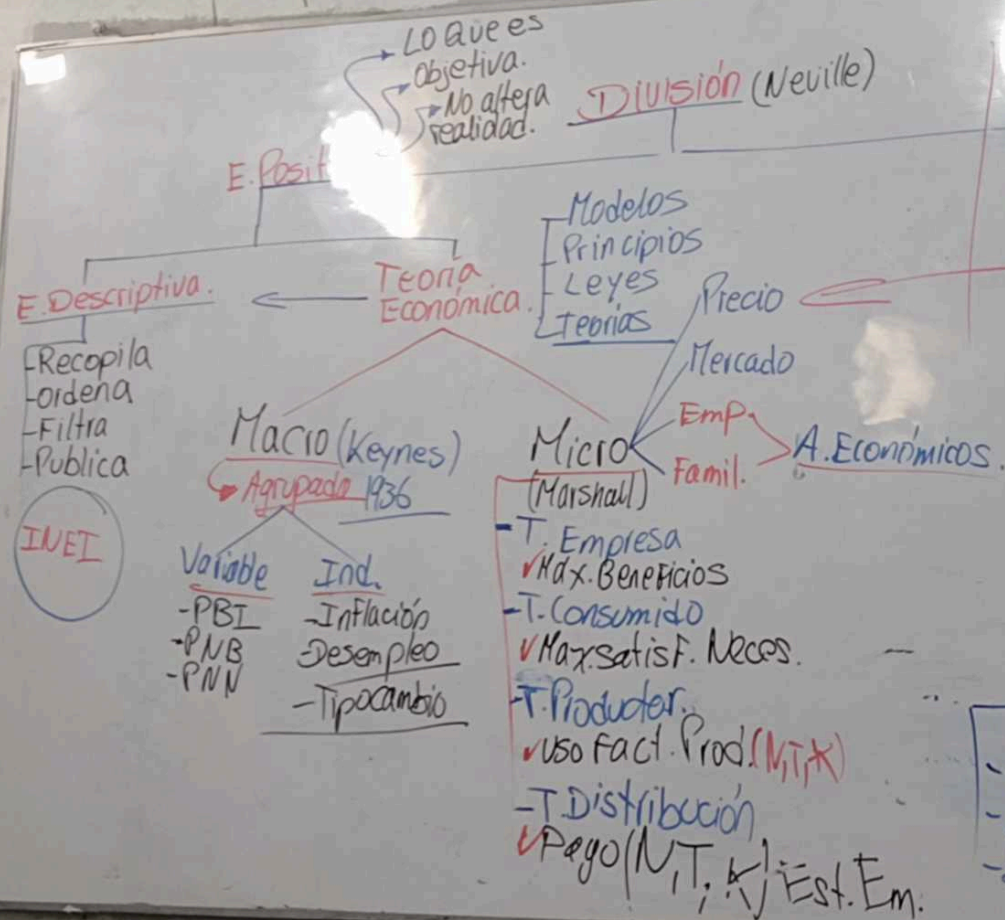 Lo que es
Objetiva.
No altera
realidad.
División (Neville)
E. Posit
Modelos
Principios
Leyes
Teorías
E. Descriptiva.
Recopila
ordena
Filtra
Publica
INEI
Teoría
Económica.
Macro (Keynes)
Agrupada 1936
Variable
-PBI
-PNB
-PNN
Ind.
-Inflación
-Desempleo
-Tipocambio
Micro
(Marshall)
Precio
Mercado
Emp.
Famil.
A. Económicos.
-T. Empresa
✓Max. Beneficios
-T. Consumido
✓Max.satisf. Neces.
-T. Productor.
✓uso Fact. Prod. (N,T,K)
-T. Distribución
✓Pago (N,T,K) Est. Em.